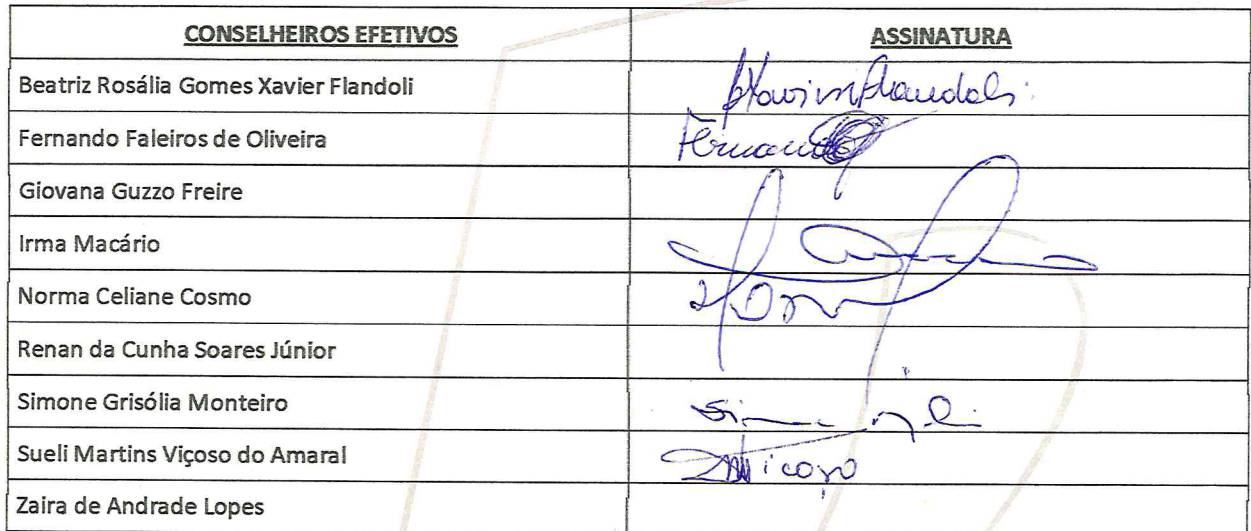 CONSELHEIROS EFETIVOS ASSINATURA
Beatriz Rosália Gomes Xavier Flandoli
Fernando Faleiros de Oliveira Fernando
Giovana Guzzo Freire
Irma Macário
Norma Celiane Cosmo
Renan da Cunha Soares Júnior
Simone Grisólia Monteiro
Sueli Martins Viçoso do Amaral
Zaira de Andrade Lopes